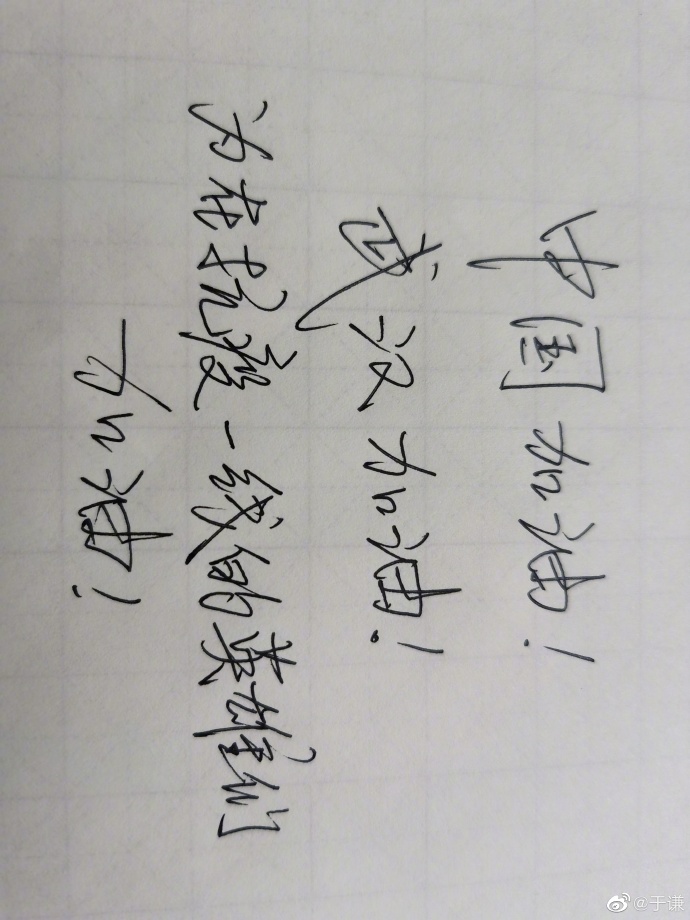 中国加油!
武汉加油!
为在抗疫一线的英雄们
加油!
@于谦